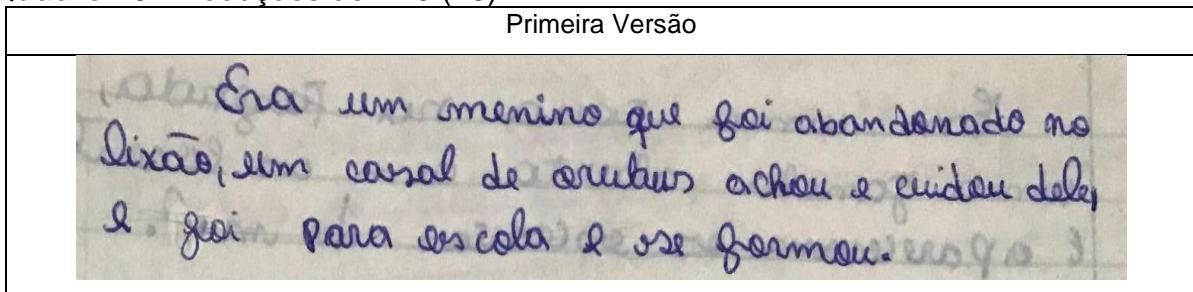 Primeira Versão
Era um menino que foi abandonado no
lixão, um casal de orubus achou e cuidou dele,
e foi para escola e se formou.